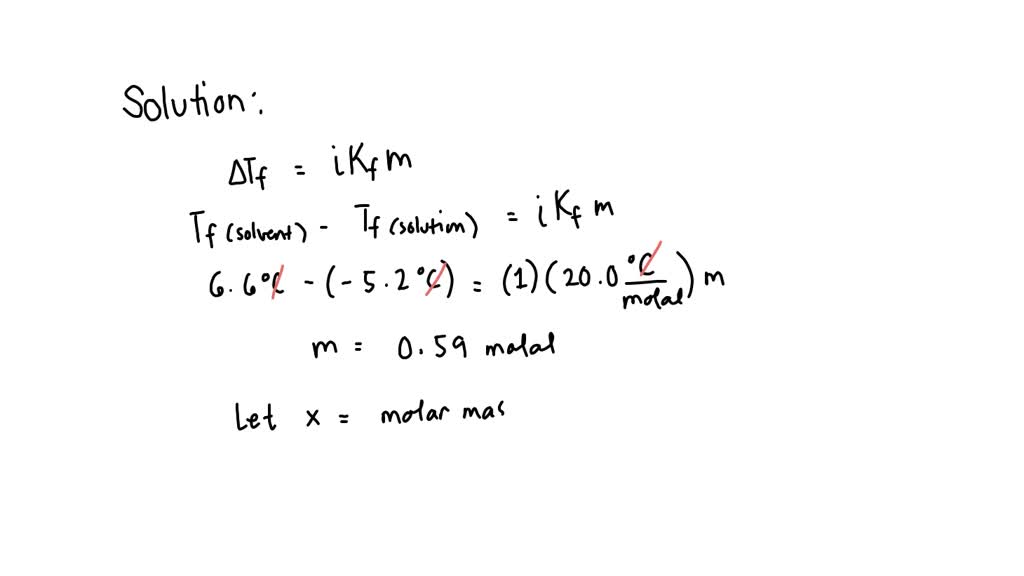 Solution:
ΔTf = iKfm
Tf (solvent) - Tf (solution) = iKf m
6.6°C - (-5.2°C) = (1)(20.0 °C/molal) m
m = 0.59 molal
Let x = molar mas